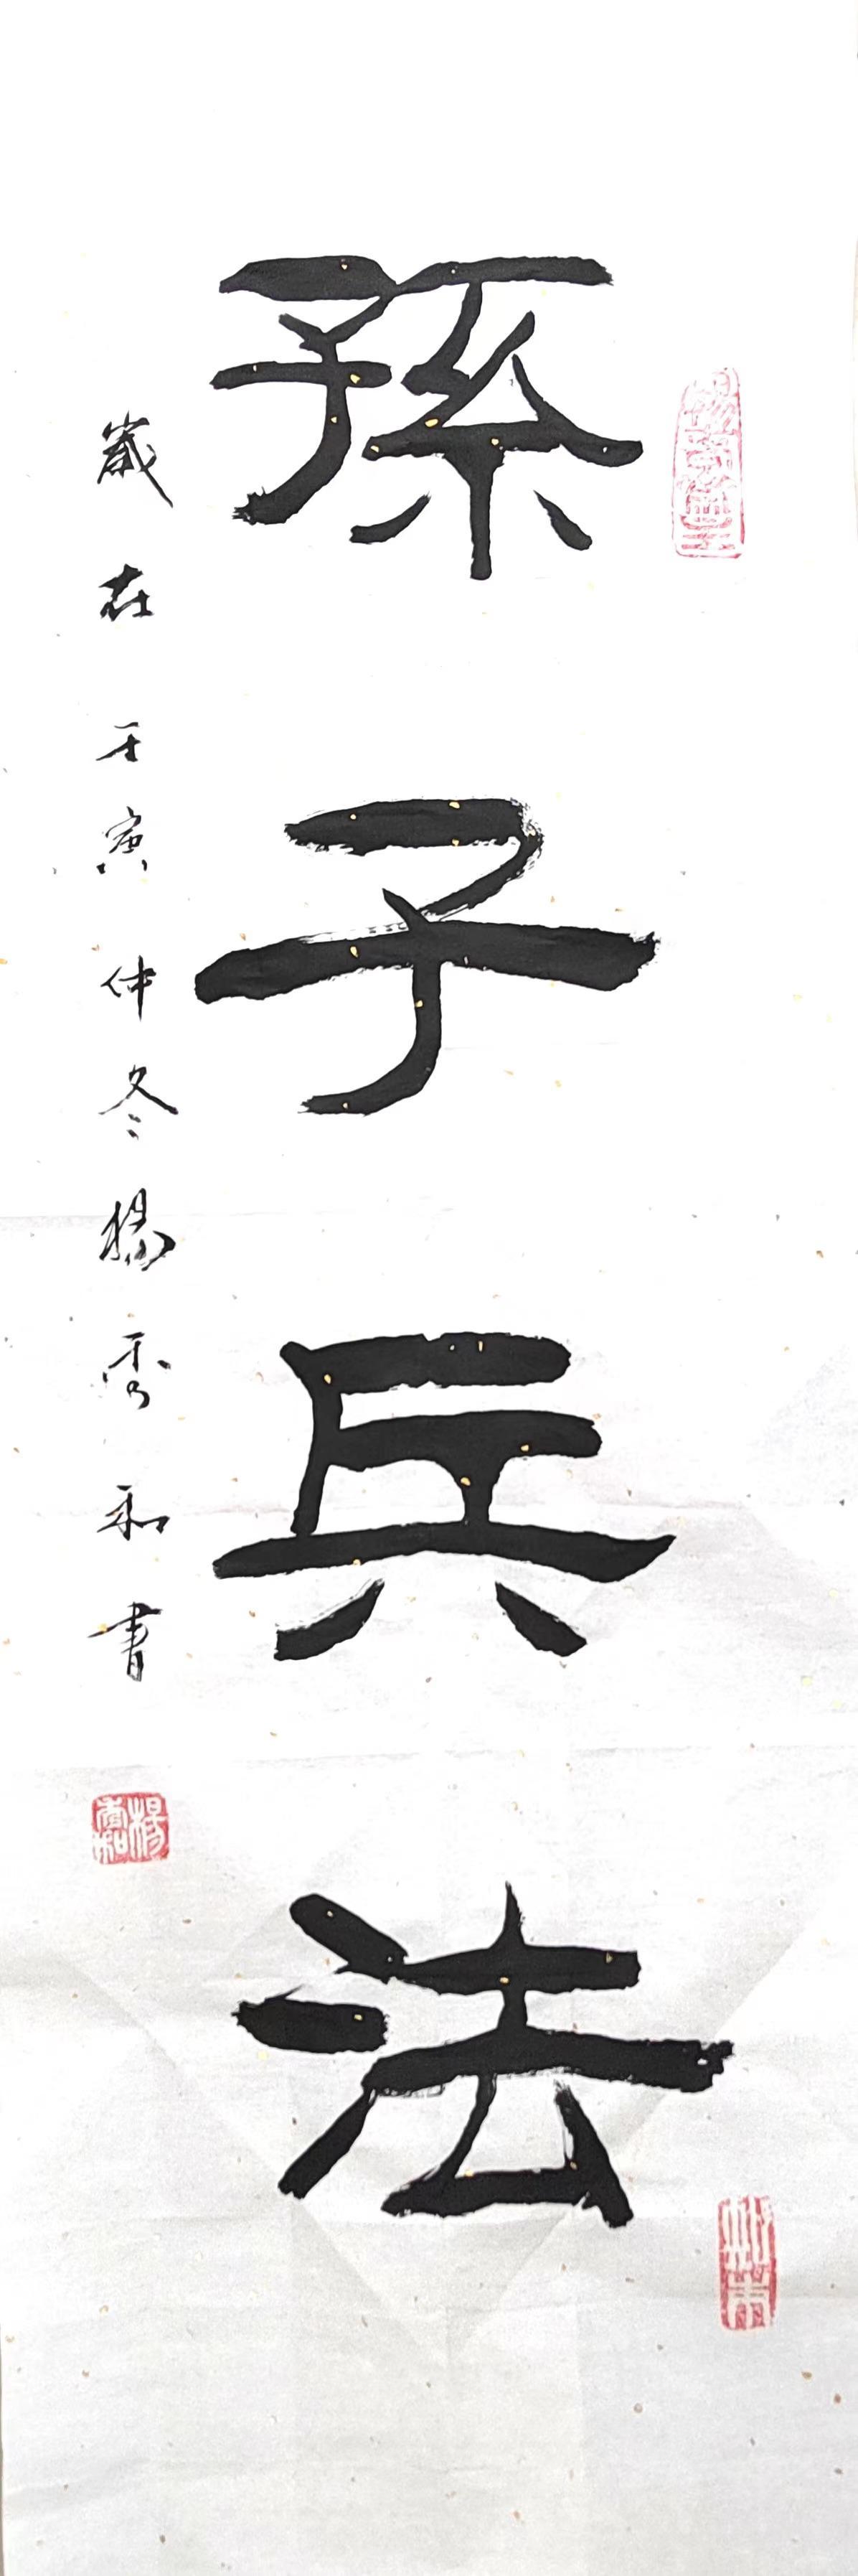 孫子兵法
歲在壬寅仲冬楊秀和書
楊秀和